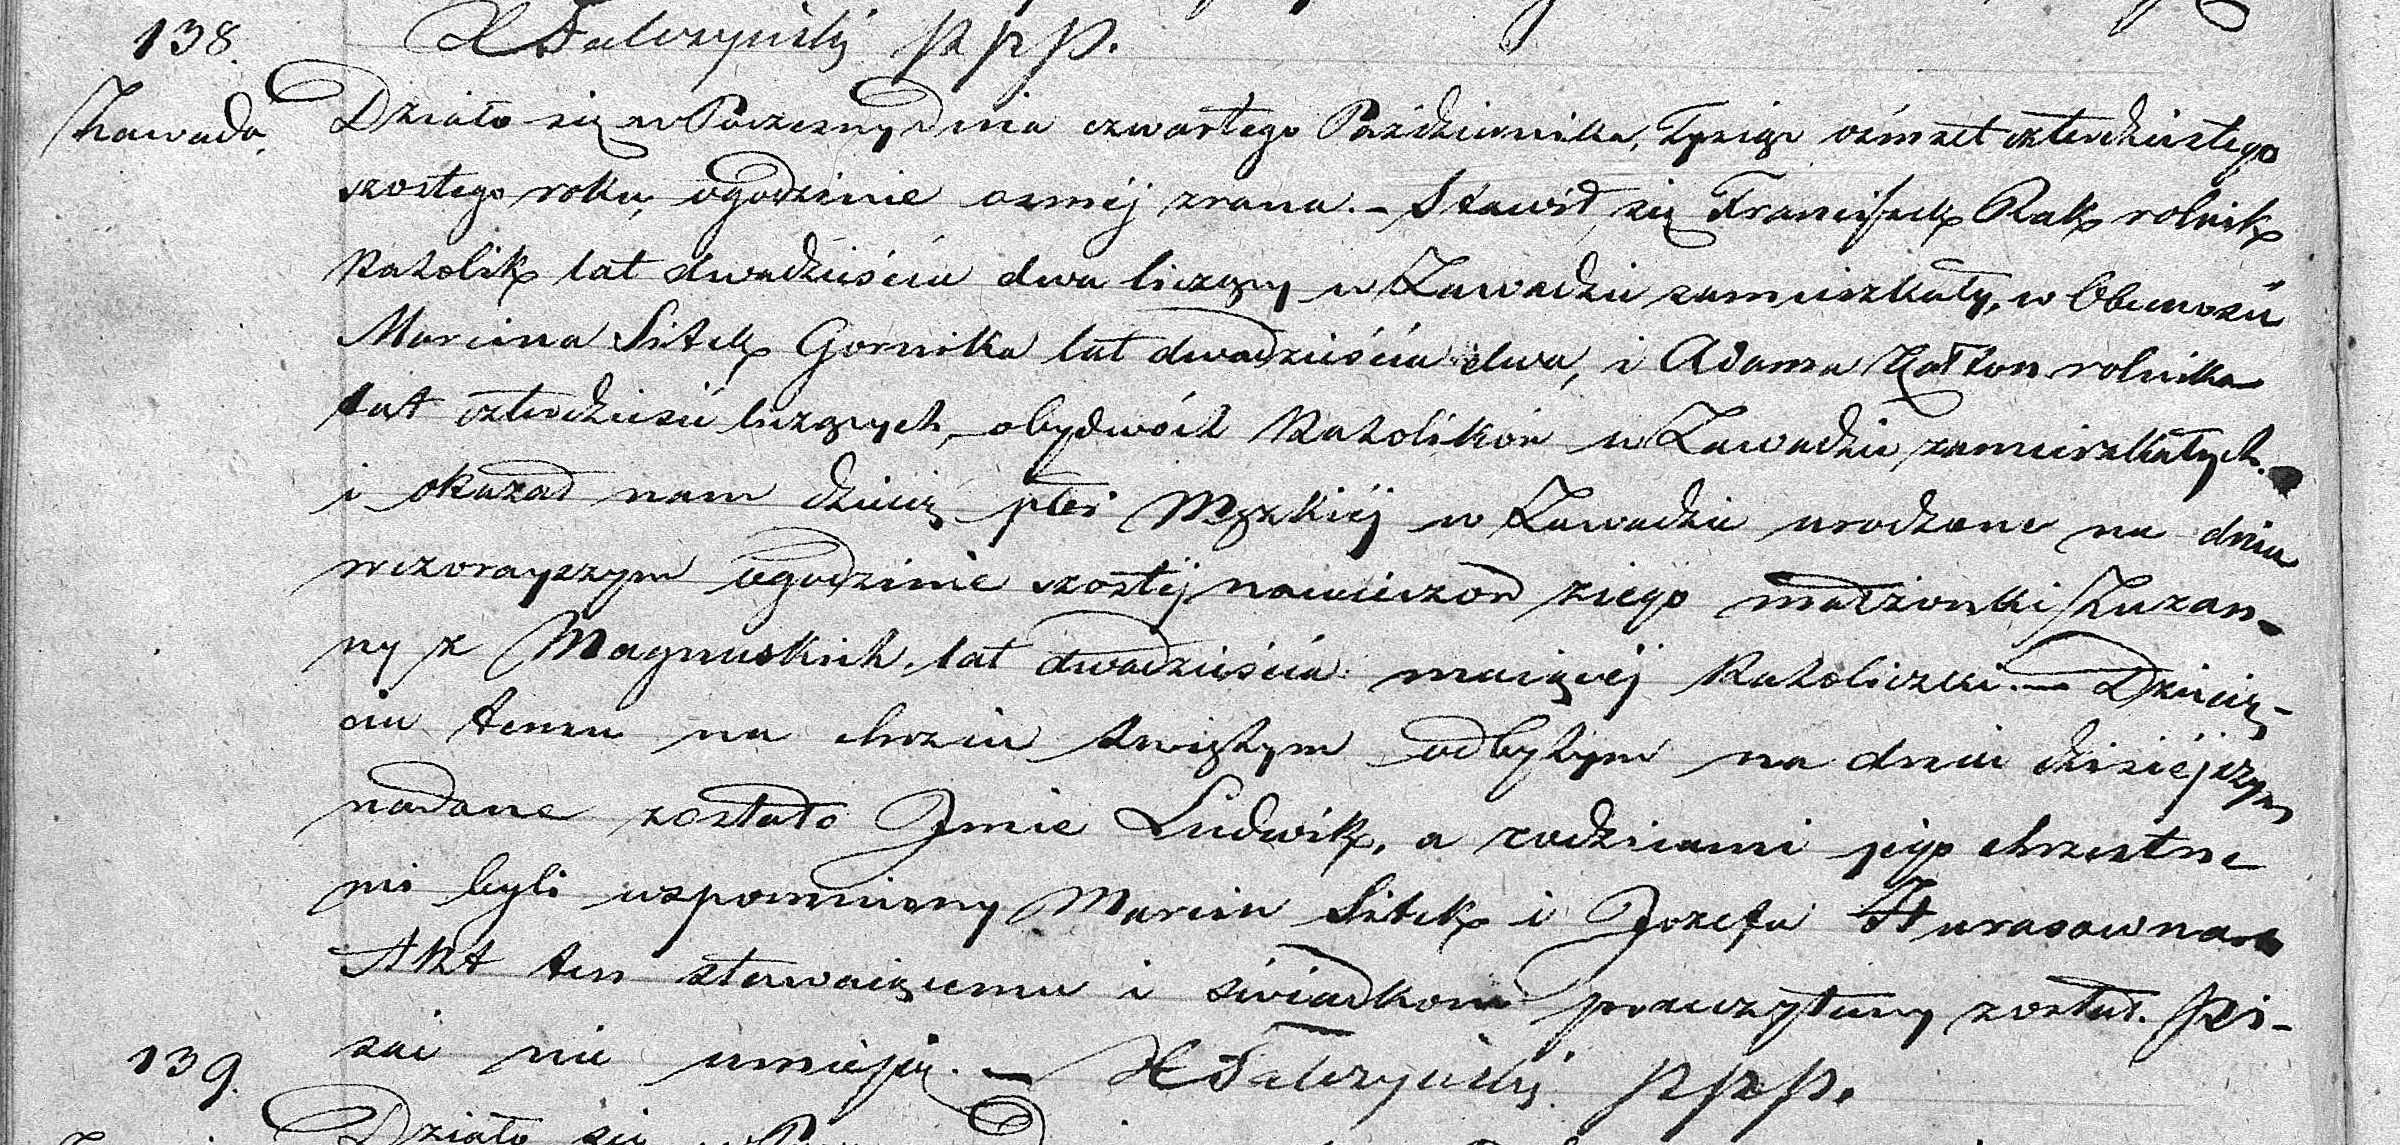 138. X Falczyński p p p.
Zawada. Działo się w Poczesny Dnia czwartego Października, Tysiąc ośmset czterdziestego
szostego roku, ogodzinie osméj zrana. – Stawił się Franciszek Rak rolnik
Katolik lat dwadzieścia dwa liczący w Zawadzie zamieszkały, w Obecności
Marcina Sitek Gornika lat dwadzieścia dwa, i Adama rolnika
lat czterdzieści liczących, obydwóch Katolików w Zawadzie zamieszkałych.
i okazał nam dziecię płci Męzkiéj w Zawadzie urodzone na dniu
wczorayszym ogodzinie szostéj nawieczor ziego małżonki Zuzan-
ny z Magnuskich, lat dwadzieścia maiącéj Katoliczki. — Dziecię-
ciu temu na chrzcie świętym odbytym na dniu dzisiéjszym
nadane zostało Jmie Ludwik, a rodzicami jego chrzestne
mi byli wspomniony Marcin Sitek i Jozefa
Akt ten stawaiącemu i świadkom przeczytany został. Pi-
sać nie umieją. — X Falczyński p p p.
139.
Działo się w